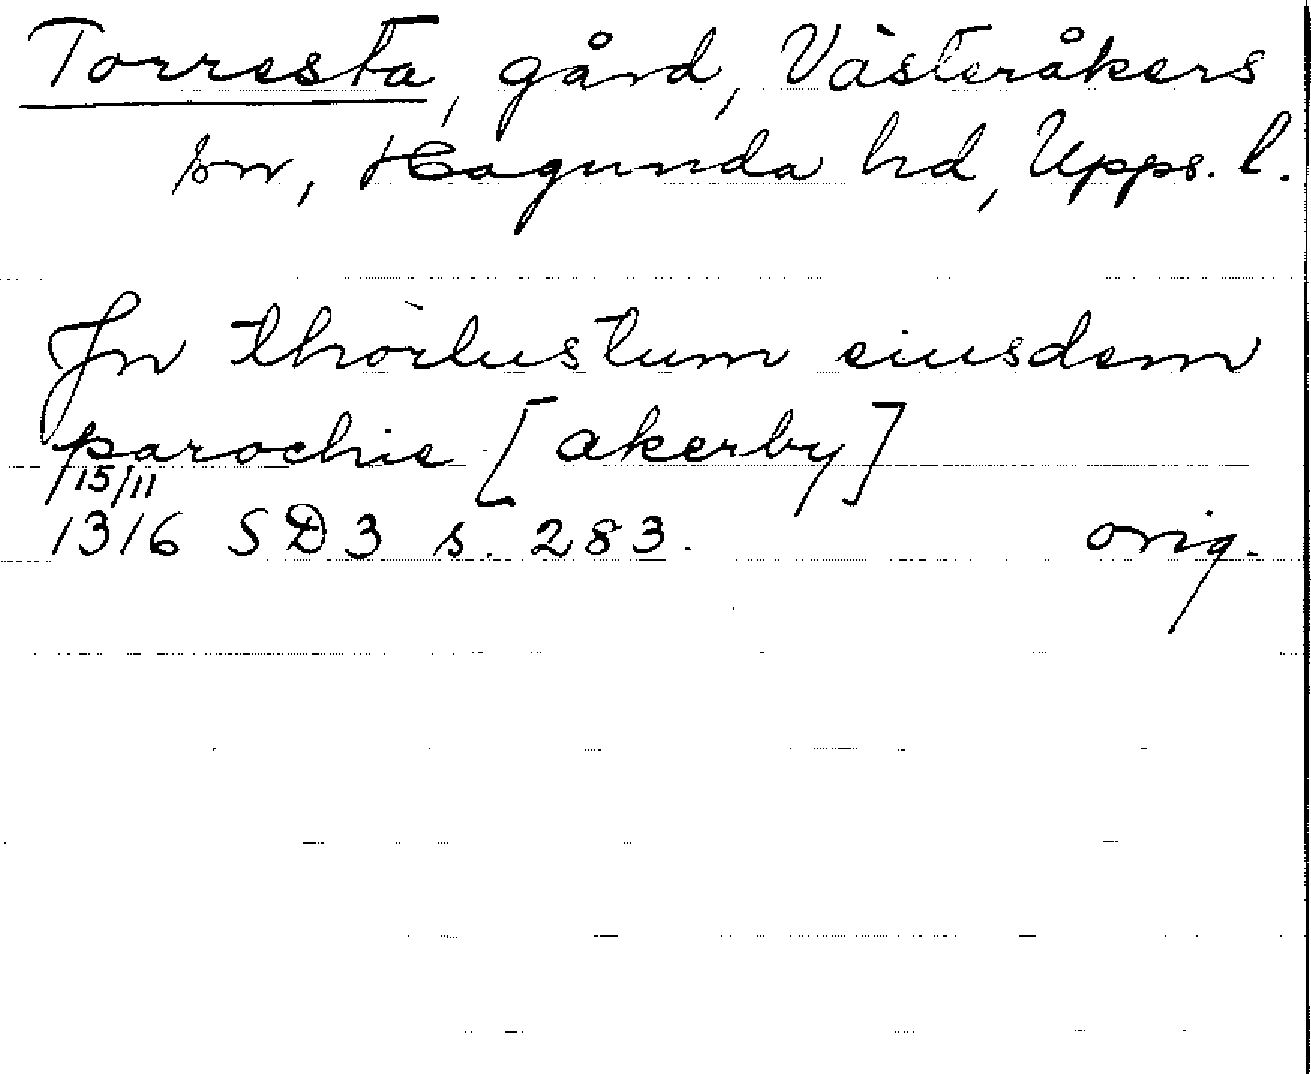 Torresta, gård, Västeråkers
sn, Hagunda hd, Upps. l.
Jn thorlustum eiusdem
parochie [akerby]
15/11
1316 SD3 s. 283. orig.